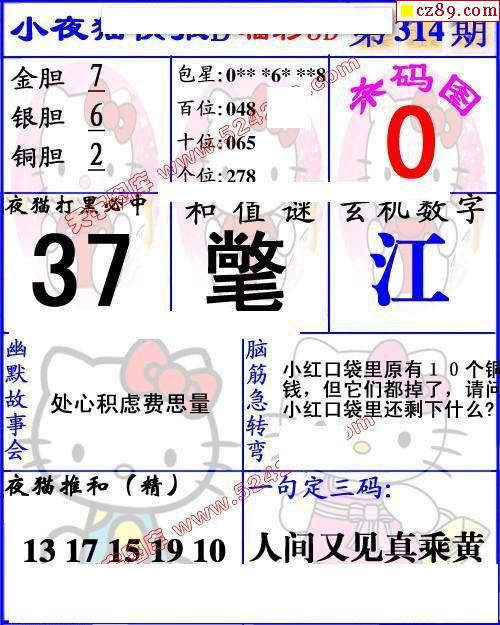 cz89.com
小夜猫 D 福彩3D 第314期
金胆 7
银胆 6
铜胆 2
包星:0** *6* **8
百位:048
十位:065
个位:278
杀码图
0
夜猫打黑必中
37
和值谜
氅
玄机数字
江
幽默故事会
处心积虑费思量
脑筋急转弯
小红口袋里原有10个铜
钱，但它们都掉了，请问
小红口袋里还剩下什么?
夜猫推和（精）
13 17 15 19 10
一句定三码:
人间又见真乘黄
天宇图库 www.5242